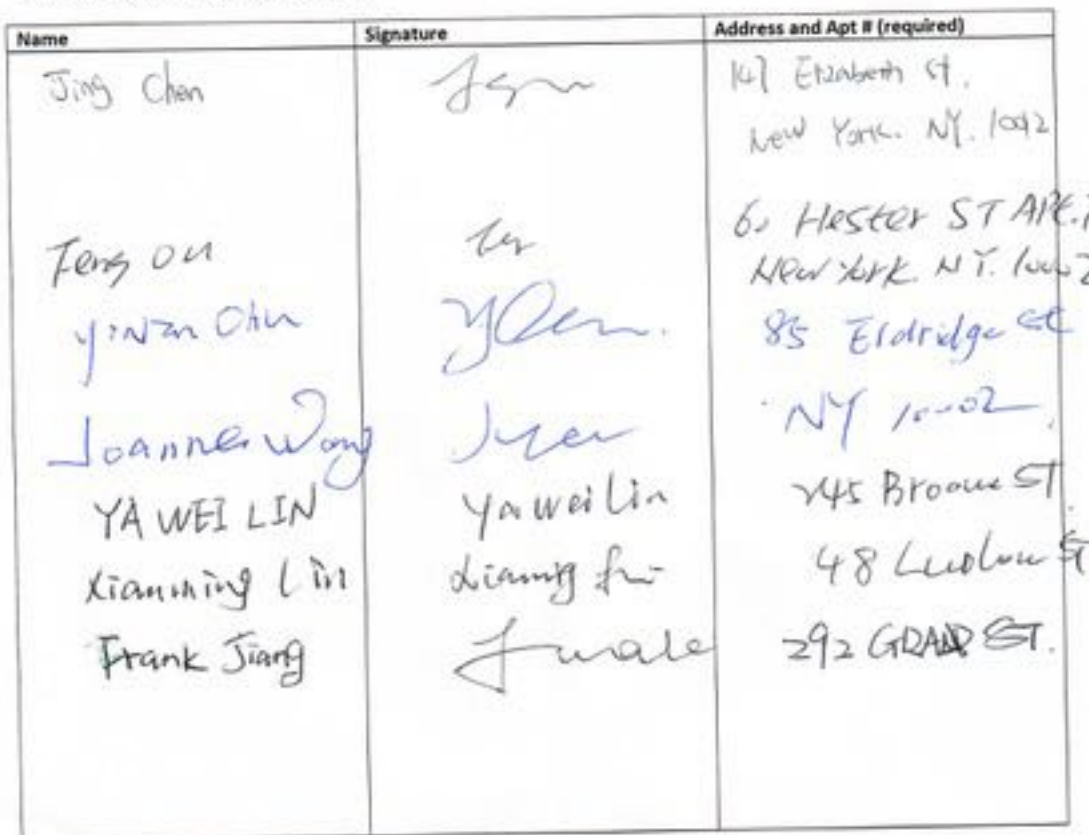 Name Signature Address and Apt # (required)
Jing Chen 147 Elizabeth St.
New York. NY. 10012
Feng Ou 6 Hester ST Apt.
New York. NY. 10002
85 Eldridge St
Joanne Wong NY 10002
YA WEI LIN Ya wei Lin 245 Broome ST.
Xianming Lin 48 Ludlow St
Frank Jiang 292 GRAND ST.